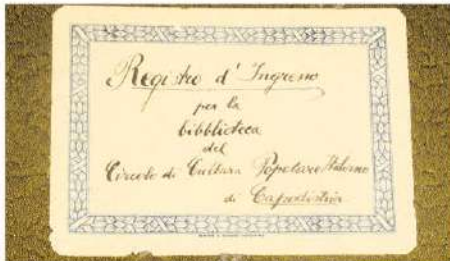 Registro d'Ingresso
per la
bibblioteca
del
Circolo di Cultura Popolare Italiano
di Capodistria